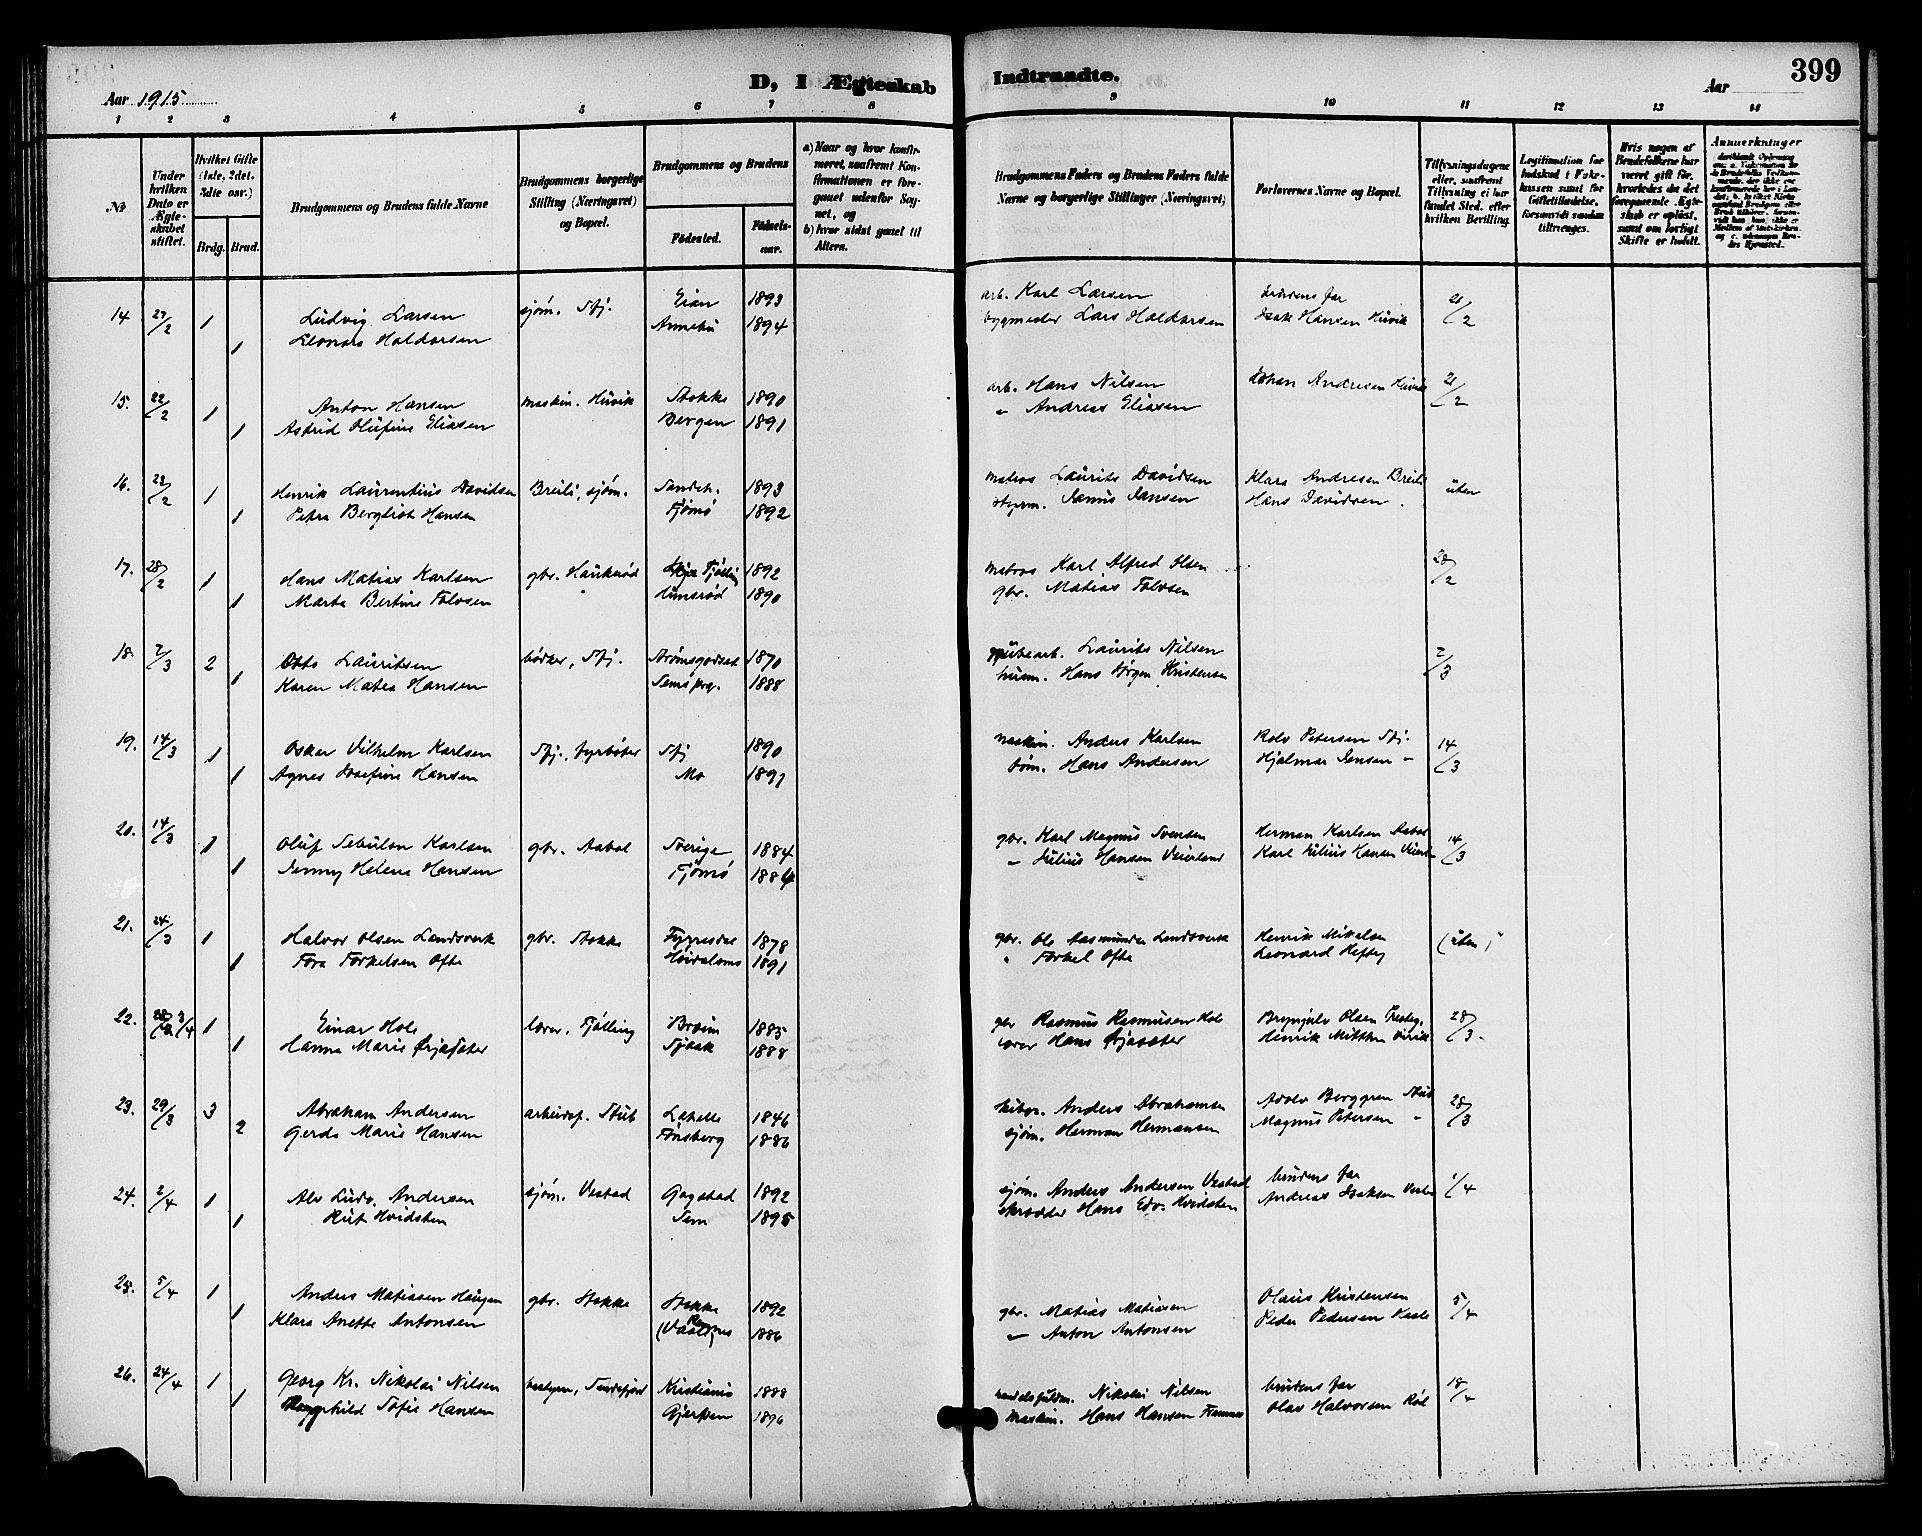 399
D, I Ægteskab Indtraadte.
Aar 1915
Aar
1 2 3 4 5 6 7 8 9 10 11 12 13 14
No
Under hvilken Dato er Ægteskabet stiftet.
Hvilket Gifte (1ste, 2det, 3dte osv.)
Brdg. Brud.
Brudgommens og Brudens fulde Navne
Brudgommens borgerlige Stilling (Næringsvei) og Bopæl.
Brudgommens og Brudens
Fødested. Fødselsaar.
a) Naar og hvor konfirmeret, saafremt Konfirmationen er foregaaet udenfor Sognet, og
b) hvor sidst gaaet til Alters.
Brudgommens Faders og Brudens Faders fulde Navne og borgerlige Stillinger (Næringsvei)
Forlovernes Navne og Bopæl.
Tillysningsdagene eller, saafremt Tillysning ei har fundet Sted, efter hvilken Bevilling.
Legitimation for Indskud i Enkekassen samt for Giftetilladelse, forsaavidt saadan tiltrænges.
Hvis nogen af Brudefolkene har været gift før, hvorledes da det foregaaende Ægteskab er opløst, samt om lovligt Skifte er holdt.
Anmerkninger
14 27/2 1 Ludvig Larsen sjøm. Stj. Eian 1893 arb. Karl Larsen brudens far 21/2
1 Leonora Haldorsen Annebu 1894 bygmester Lars Haldorsen Isak Hansen Huvik
15. 22/2 1 Anton Hansen maskin. Huvik Stokke 1890 arb. Hans Nilsen Johan Andresen Huvik 21/2
1 Astrid Olufine Eliasen Bergen 1891 " Andreas Eliasen
16. 22/2 1 Henrik Laurentius Davidsen Breili, sjøm. Sandeh. 1893 matros Laurits Davidsen Klara Andresen Breili uten
1 Petra Bergliot Hansen Tjømø 1892 styrm. Hansen Hans Davidsen.
17. 28/2 1 Hans Matias Karlsen gbr. Haukerød Tjølling 1892 matros Karl Alfred Olsen 28/2
1 Marta Bertine 1890 gbr. Matias
18. 7/3 2 Otto Lauritsen bødker, Stj. Strømsgodset 1870 Laurits Nilsen 7/3
1 Karen Matea Hansen Sems prg. 1888 husm. Hans Jørgen Kristensen
19. 14/3 1 Oskar Vilhelm Karlsen Stj. fyrbøter Stj 1890 maskin. Anders Karlsen Rolv Petersen Stj. 14/3
1 Agnes Josefine Hansen Mo 1891 tøm. Hans Andersen Hjalmar Jensen "
20. 14/3 1 Oluf Sebulon Karlsen gbr. Aabol Sverige 1884 gbr. Karl Magnus Svensen Herman Karlsen Aabol 14/3
1 Jenny Helene Hansen Tjømø 1884 " Julius Hansen Veierland Karl Julius Hansen
21. 24/3 1 Halvor Olsen Landsverk gbr. Stokke Fyresdal 1878 gbr. Ole Aasmundsen Landsverk Henrik Mikelsen (uten)
1 Tora Torkelsen Ofte Høidalsmo 1891 " Torkel Ofte Leonard Hefty
22. 3/4 1 Einar Hole lærer, Tjølling 1885 gbr Rasmus Rasmusen Hole Brynjulv Olsen 28/3
1 Hanna Marie Ørjasæter 1888 lærer Hans Ørjasæter Henrik Virik
23. 29/3 3 Abraham Andersen arbeidsf. Stub 1846 Anders Abrahamsen Adolv Berggren Stub 28/3
2 Gerda Marie Hansen Tønsberg 1886 sjøm. Herman Hermansen Magnus Petersen "
24. 2/4 1 Alv Ludv. Andersen sjøm. Vestad Gogstad 1892 sjøm. Anders Andersen Vestad brudens far 1/4
1 Rut Hvidsten Sem 1895 skrædder Hans Edv. Hvidsten Andreas Isaksen
25. 5/4 1 Anders Matiasen Haugen gbr. Stokke Stokke 1892 gbr. Matias Matiasen Olaus Kristensen 5/4
1 Klara Anette Antonsen 1886 " Anton Antonsen Peder Pedersen
26. 24/4 1 Georg Kr. Nikolai Nilsen Sandefjord Kristiania 1888 Nikolai Nilsen brudens far 18/4
1 Ragnhild Sofie Hansen Gjerpen 1896 maskin. Hans Hansen Framnes Olav Halvorsen